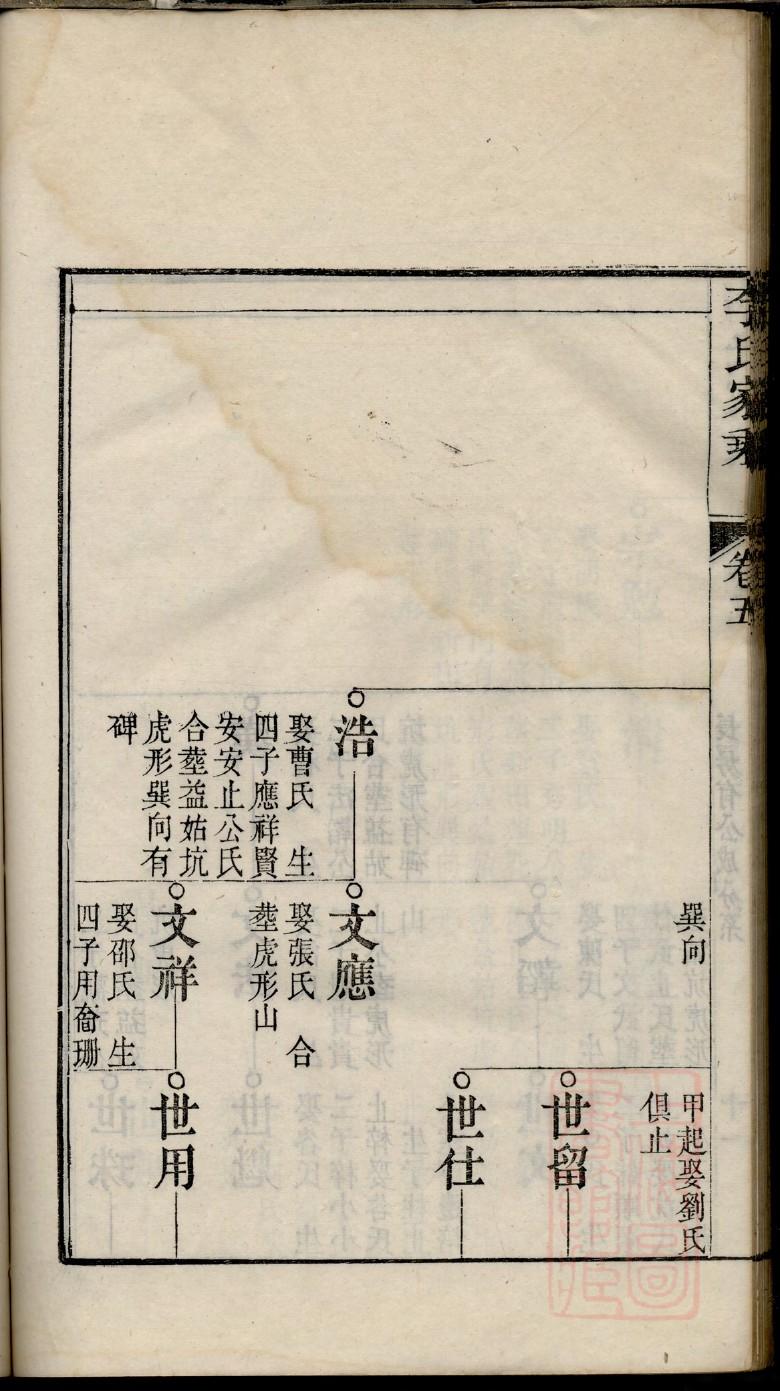 李氏家乘
卷五
浩
娶曹氏 生
四子應祥賢
安安止公氏
合塟益姑坑
虎形巽向有
碑
巽向
文應
娶張氏 合
塟虎形山
文祥
娶邵氏 生
四子用奮珊
甲起娶劉氏
俱止
世留
世仕
世用